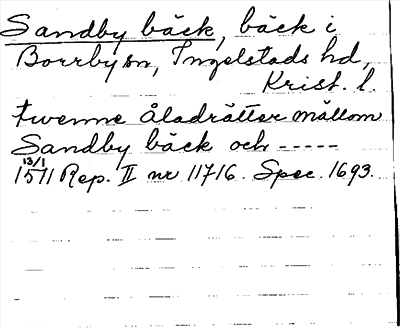 Sandby bäck, bäck i
Borrby sn, Ingelstads hd,
Krist. l.
twenne åladrätter mällom
Sandby bäck och -----
13/1 1511 Rep. II nr 11716. Spec. 1693.